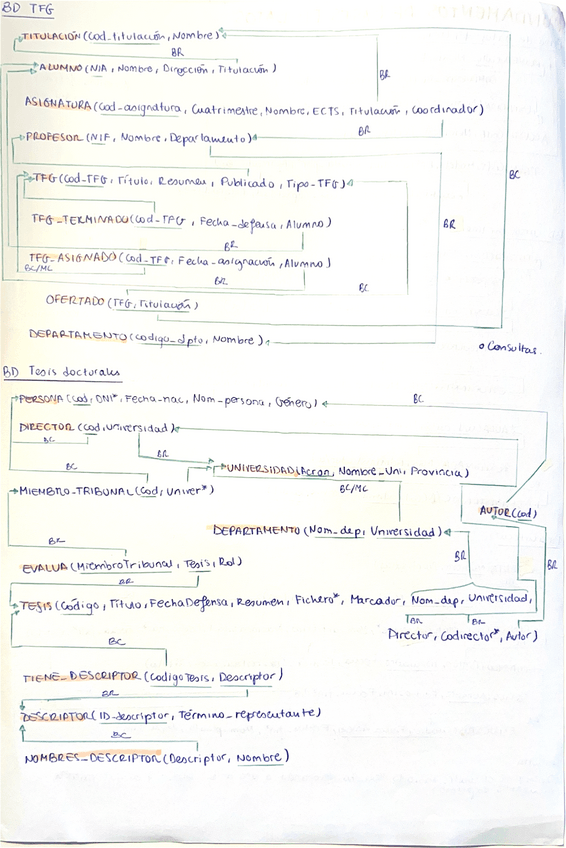 BD TFG
TITULACIÓN (Cod_titulación, Nombre)
BR
ALUMNO (NIA, Nombre, Dirección, Titulación)
BR
ASIGNATURA (Cod_asignatura, Cuatrimestre, Nombre, ECTS, Titulación, Coordinador)
BR
PROFESOR (NIF, Nombre, Departamento)
BC
TFG (Cod-TFG, Título, Resumen, Publicado, Tipo-TFG)
BR
TFG_TERMINADO (Cod_TFG, Fecha_defensa, Alumno)
BR
TFG_ASIGNADO (Cod_TFG, Fecha_asignación, Alumno)
BC/ML
BR
BC
OFERTADO (TFG, Titulación)
DEPARTAMENTO (codigo_dpto, Nombre)
o Consultas.
BD Tesis doctorales
PERSONA (cod, DNI*, Fecha-nac, Nom-persona, Género)
BC
DIRECTOR (cod, universidad)
BC
BR
BC
UNIVERSIDAD (Acron, Nombre_Uni, Provincia)
MIEMBRO-TRIBUNAL (Cod, Univer*)
BC/ML
AUTOR (cod)
DEPARTAMENTO (Nom_dep, Universidad)
BR
BR
BR
EVALUA (MiembroTribunal, Tesis, Rol)
BR
TESIS (Código, Título, FechaDefensa, Resumen, Fichero*, Marcador, Nom_dep, Universidad,
BR
BR
Director, Codirector*, Autor)
BC
TIENE_DESCRIPTOR (CodigoTesis, Descriptor)
BR
DESCRIPTOR (ID-descriptor, Término-representante)
BC
NOMBRES_DESCRIPTOR (Descriptor, Nombre)